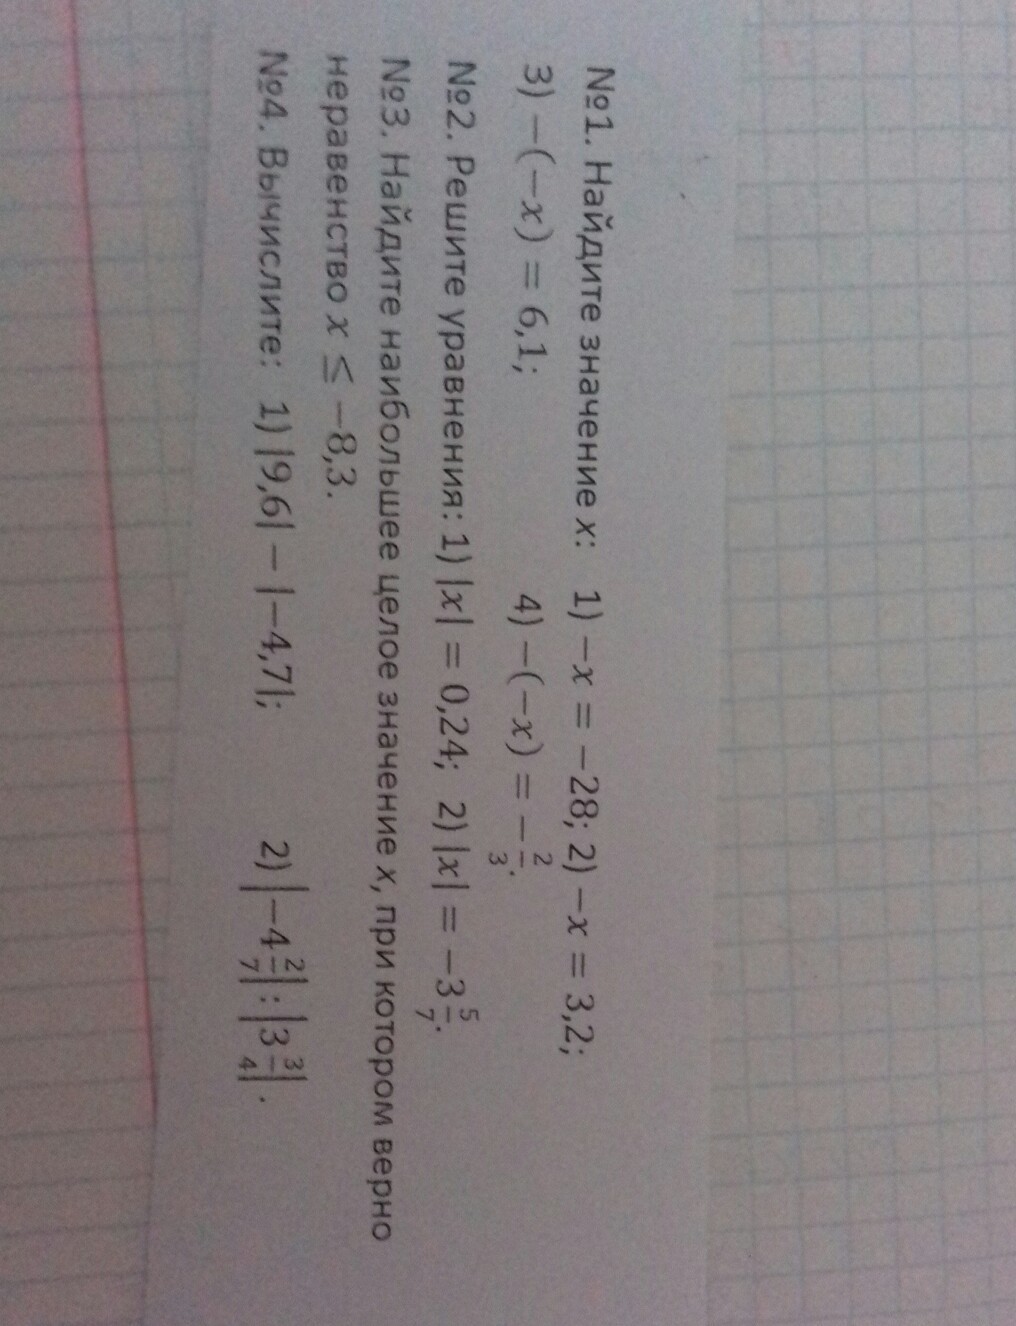 №1. Найдите значение x: 1) −x = −28; 2) −x = 3,2;
3) −(−x) = 6,1; 4) −(−x) = −2/3.
№2. Решите уравнения: 1) |x| = 0,24; 2) |x| = −3 5/7.
№3. Найдите наибольшее целое значение x, при котором верно
неравенство x ≤ −8,3.
№4. Вычислите: 1) |9,6| − |−4,7|; 2) |−4 2/7| : |3 3/4|.